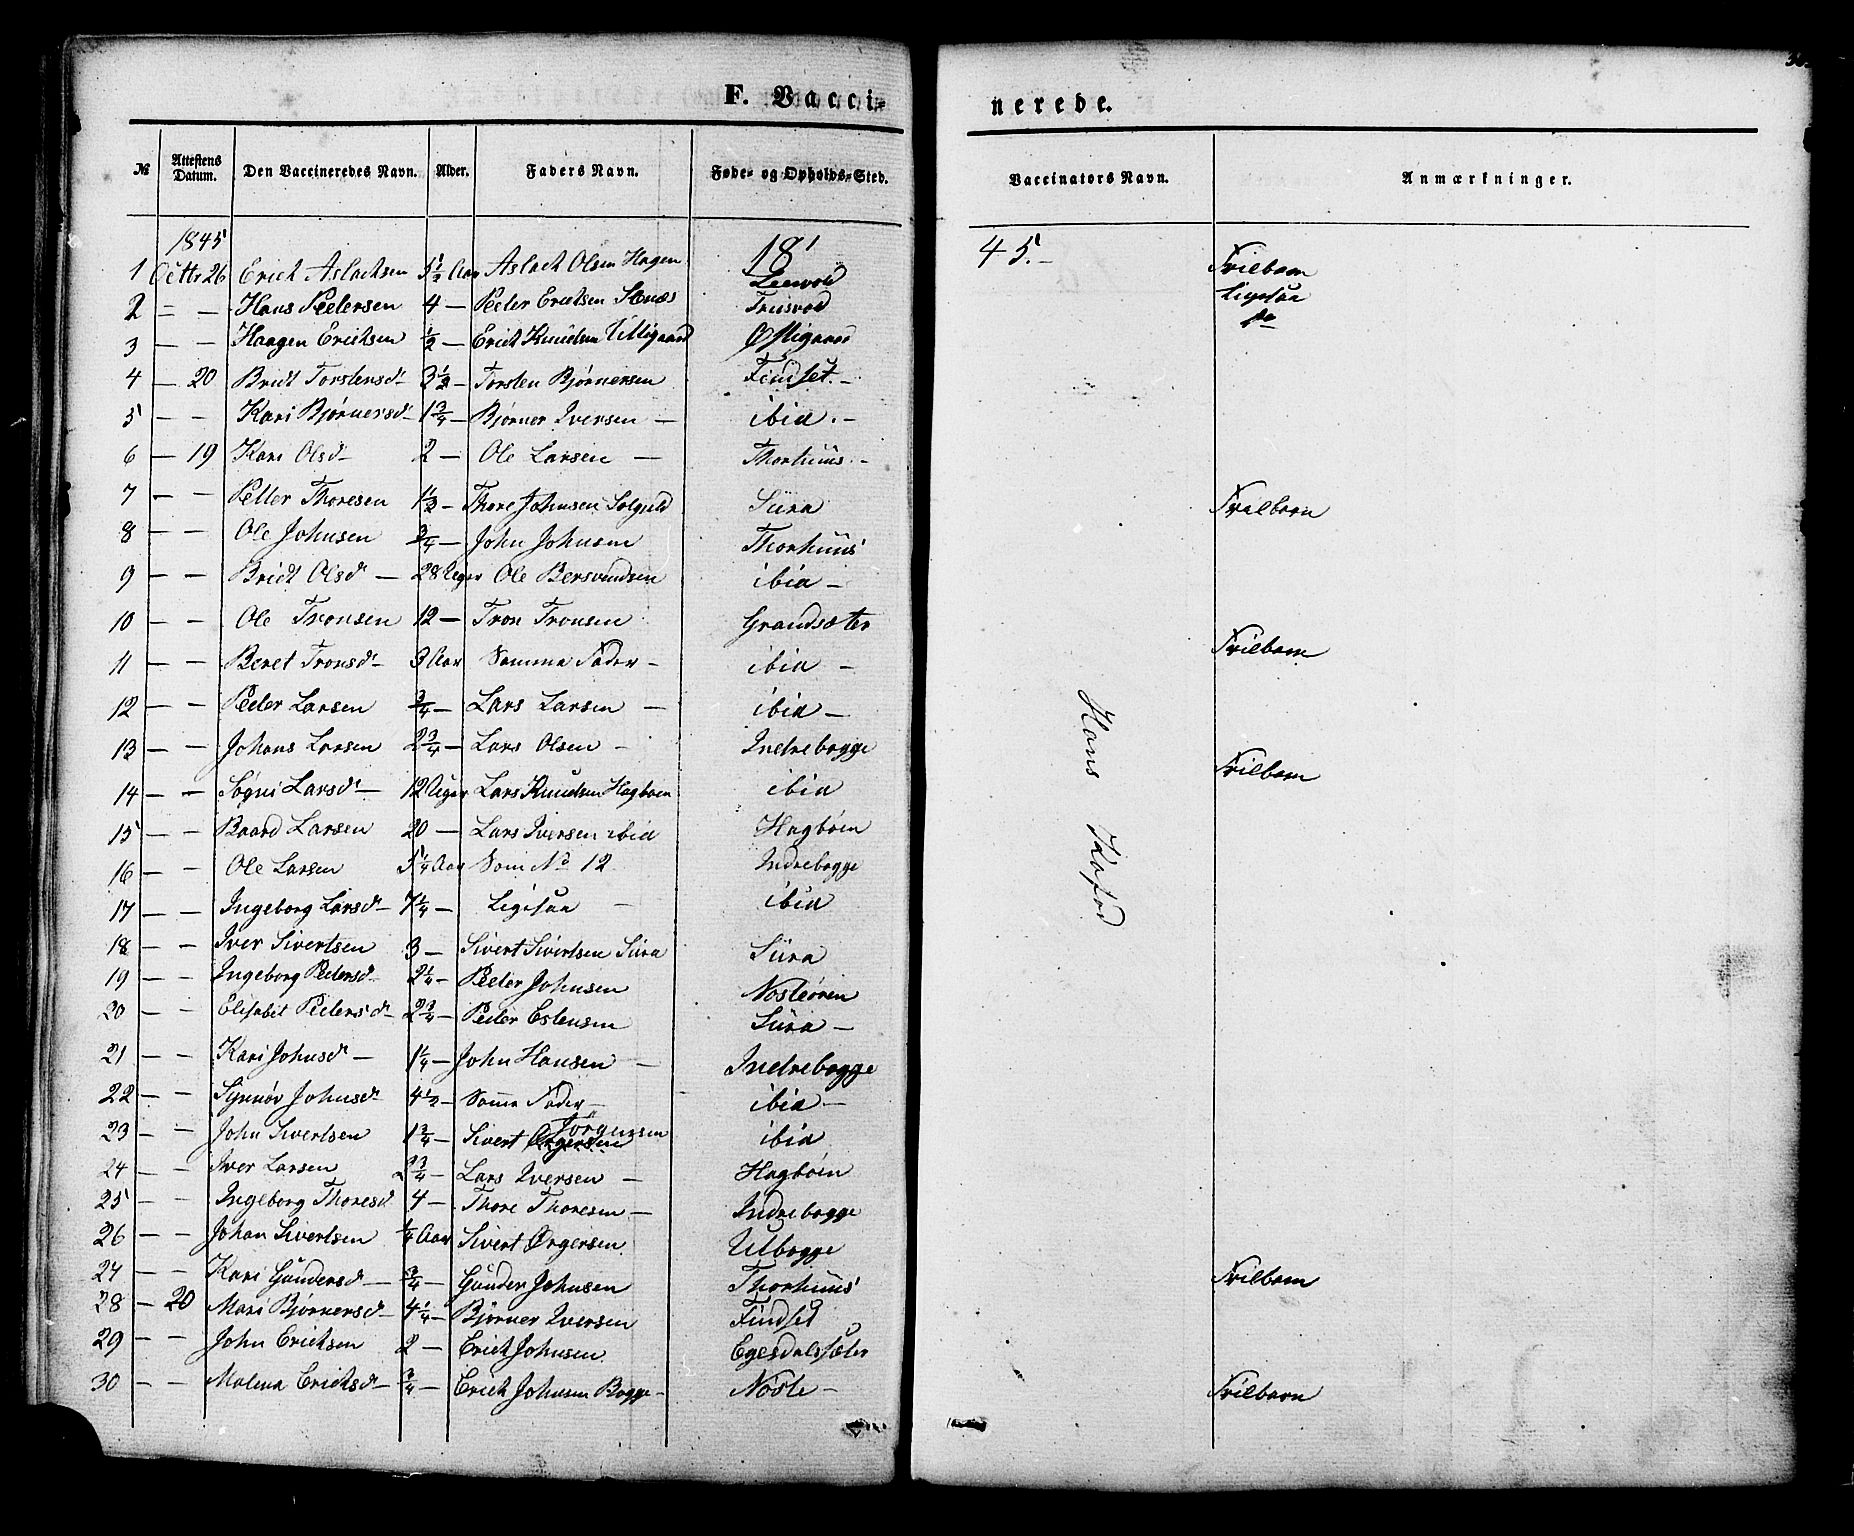 F. Vacci-
nerede.
№ Attestens Datum. Den Vaccineredes Navn. Alder. Faders Navn. Føde- og Opholds-Sted. Vaccinators Navn. Anmærkninger.
1845 18 45.-
1 Octbr 26 Erich Aslachsen 5 1/2 Aar Aslach Olsen Hagen Leervold Frilbarn
2 = - Hans Pedersen 4 - Peder Erichsen Ligesaa
3 - - Haagen Erichsen 1/2 - Erich Knudsen Utligaard Østigaard do
4 - 20 Bridt Torstensd. 3 1/2 - Torsten Bjørnersen Findset. -
5 - - Kari Bjørnersd. 1 3/4 - Bjørner Iversen - ibid. -
6 - 19 Kari Olsd - 2 - Ole Larsen - Thorhuus. -
7 - - Petter Thoresen 1 1/2 - Thore Johnsen Solguld Sira Frilbarn
8 - - Ole Johnsen 3/4 - John Johnsen Thorhuus
9 - - Bridt Olsd - 28 Uger Ole Bersvendsen ibid -
10 - - Ole Tronsen 12 - Tron Tronsen Grandsæter
11 - - Beret Tronsd - 3 Aar Samme Fader - ibid - Frilbarn
12 - - Peder Larsen 3/4 - Lars Larsen - ibid -
13 - - Johans Larsen 2 3/4 - Lars Olsen - Indrebogge
14 - - Søgni Larsd - 12 Uger Lars Knudsen Hagbøen ibid Frilbarn
15 - - Baard Larsen 20 - Lars Iversen ibid Hagbøen
16 - - Ole Larsen 5 1/4 Aar Som No 12 Indrebogge
17 - - Ingeborg Larsd - 7 1/4 - Ligesaa - ibid
18 - - Iver Sivertsen 3 - Sivert Sivertsen Sira Sira
19 - - Ingeborg Pedersd 2 1/4 - Peder Johnsen Nosteøren
20 - - Elisabet Pedersd - 2 3/4 - Peder Estensen Sira -
21 - - Kari Johnsd - 1 1/4 - John Hansen - Indrebogge
22 - - Synnøv Johnsd 4 1/2 - Samme Fader - ibid -
23 - - John Sivertsen 1 3/4 - Sivert Jørgensen ibid
24 - - Iver Larsen 2 3/4 - Lars Iversen - Hagbøen
25 - - Ingeborg Thoresd 4 - Thore Thoresen - Indrebogge
26 - - Johan Sivertsen 1/4 Aar Sivert Ørgersen Utbogge
27 - - Kari Gundersd - 3/4 - Gunder Johnsen Thorhuus Frilbarn
28 - 20 Mari Bjørnersd - 4 1/4 - Bjørner Iversen Findset
29 - - John Erichsen 2 - Erich Johnsen Egesdalssæter
30 - - Malena Erichsd - 3/4 - Erich Johnsen Bogge - Noste - Frilbarn
Hans Kofod